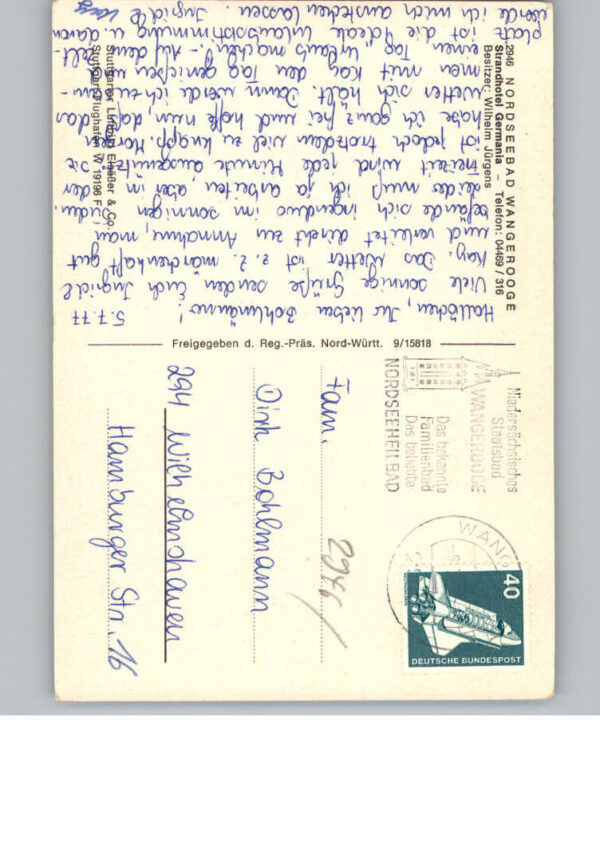 2946 NORDSEEBAD WANGEROOGE
Strandhotel Germania – Telefon: 04469 / 316
Besitzer: Wilhelm Jürgens
5.7.77
Hallöchen, Ihr lieben Bohlmänner!
Viele sonnige Grüße senden Euch Ingrid &
Kay. Das Wetter ist z. Z. märchenhaft gut
und verleitet zu direkt zur Annahme, man
befände sich irgendwo im sonnigen Süden.
Leider muß ich ja arbeiten aber in der
Freizeit wird jede Minute ausgenützt, die
ist jedoch trotzdem viel zu knapp. Morgen
habe ich ganz frei und hoffe nun, daß das
Wetter sich hält. Dann werde ich zusam-
men mit Kay den Tag genießen und
einen Tag Urlaub machen. – Auf dem Zelt-
platz ist die ideale Urlaubsstimmung u. davon
werde ich mich anstecken lassen. Ingrid &
Kay
Stuttgarter Luftbild Elsäßer & Co.
Stuttgart-Flughafen W 19196 F
Freigegeben d. Reg.-Präs. Nord-Württ. 9/15818
Niedersächsisches
Staatsbad
WANGEROOGE
Das bekannte
Familienbad
Das beliebte
NORDSEEHEILBAD
WANG
40
DEUTSCHE BUNDESPOST
2946/
Fam.
Dirk Bohlmann
294 Wilhelmshaven
Hamburger Str. 16